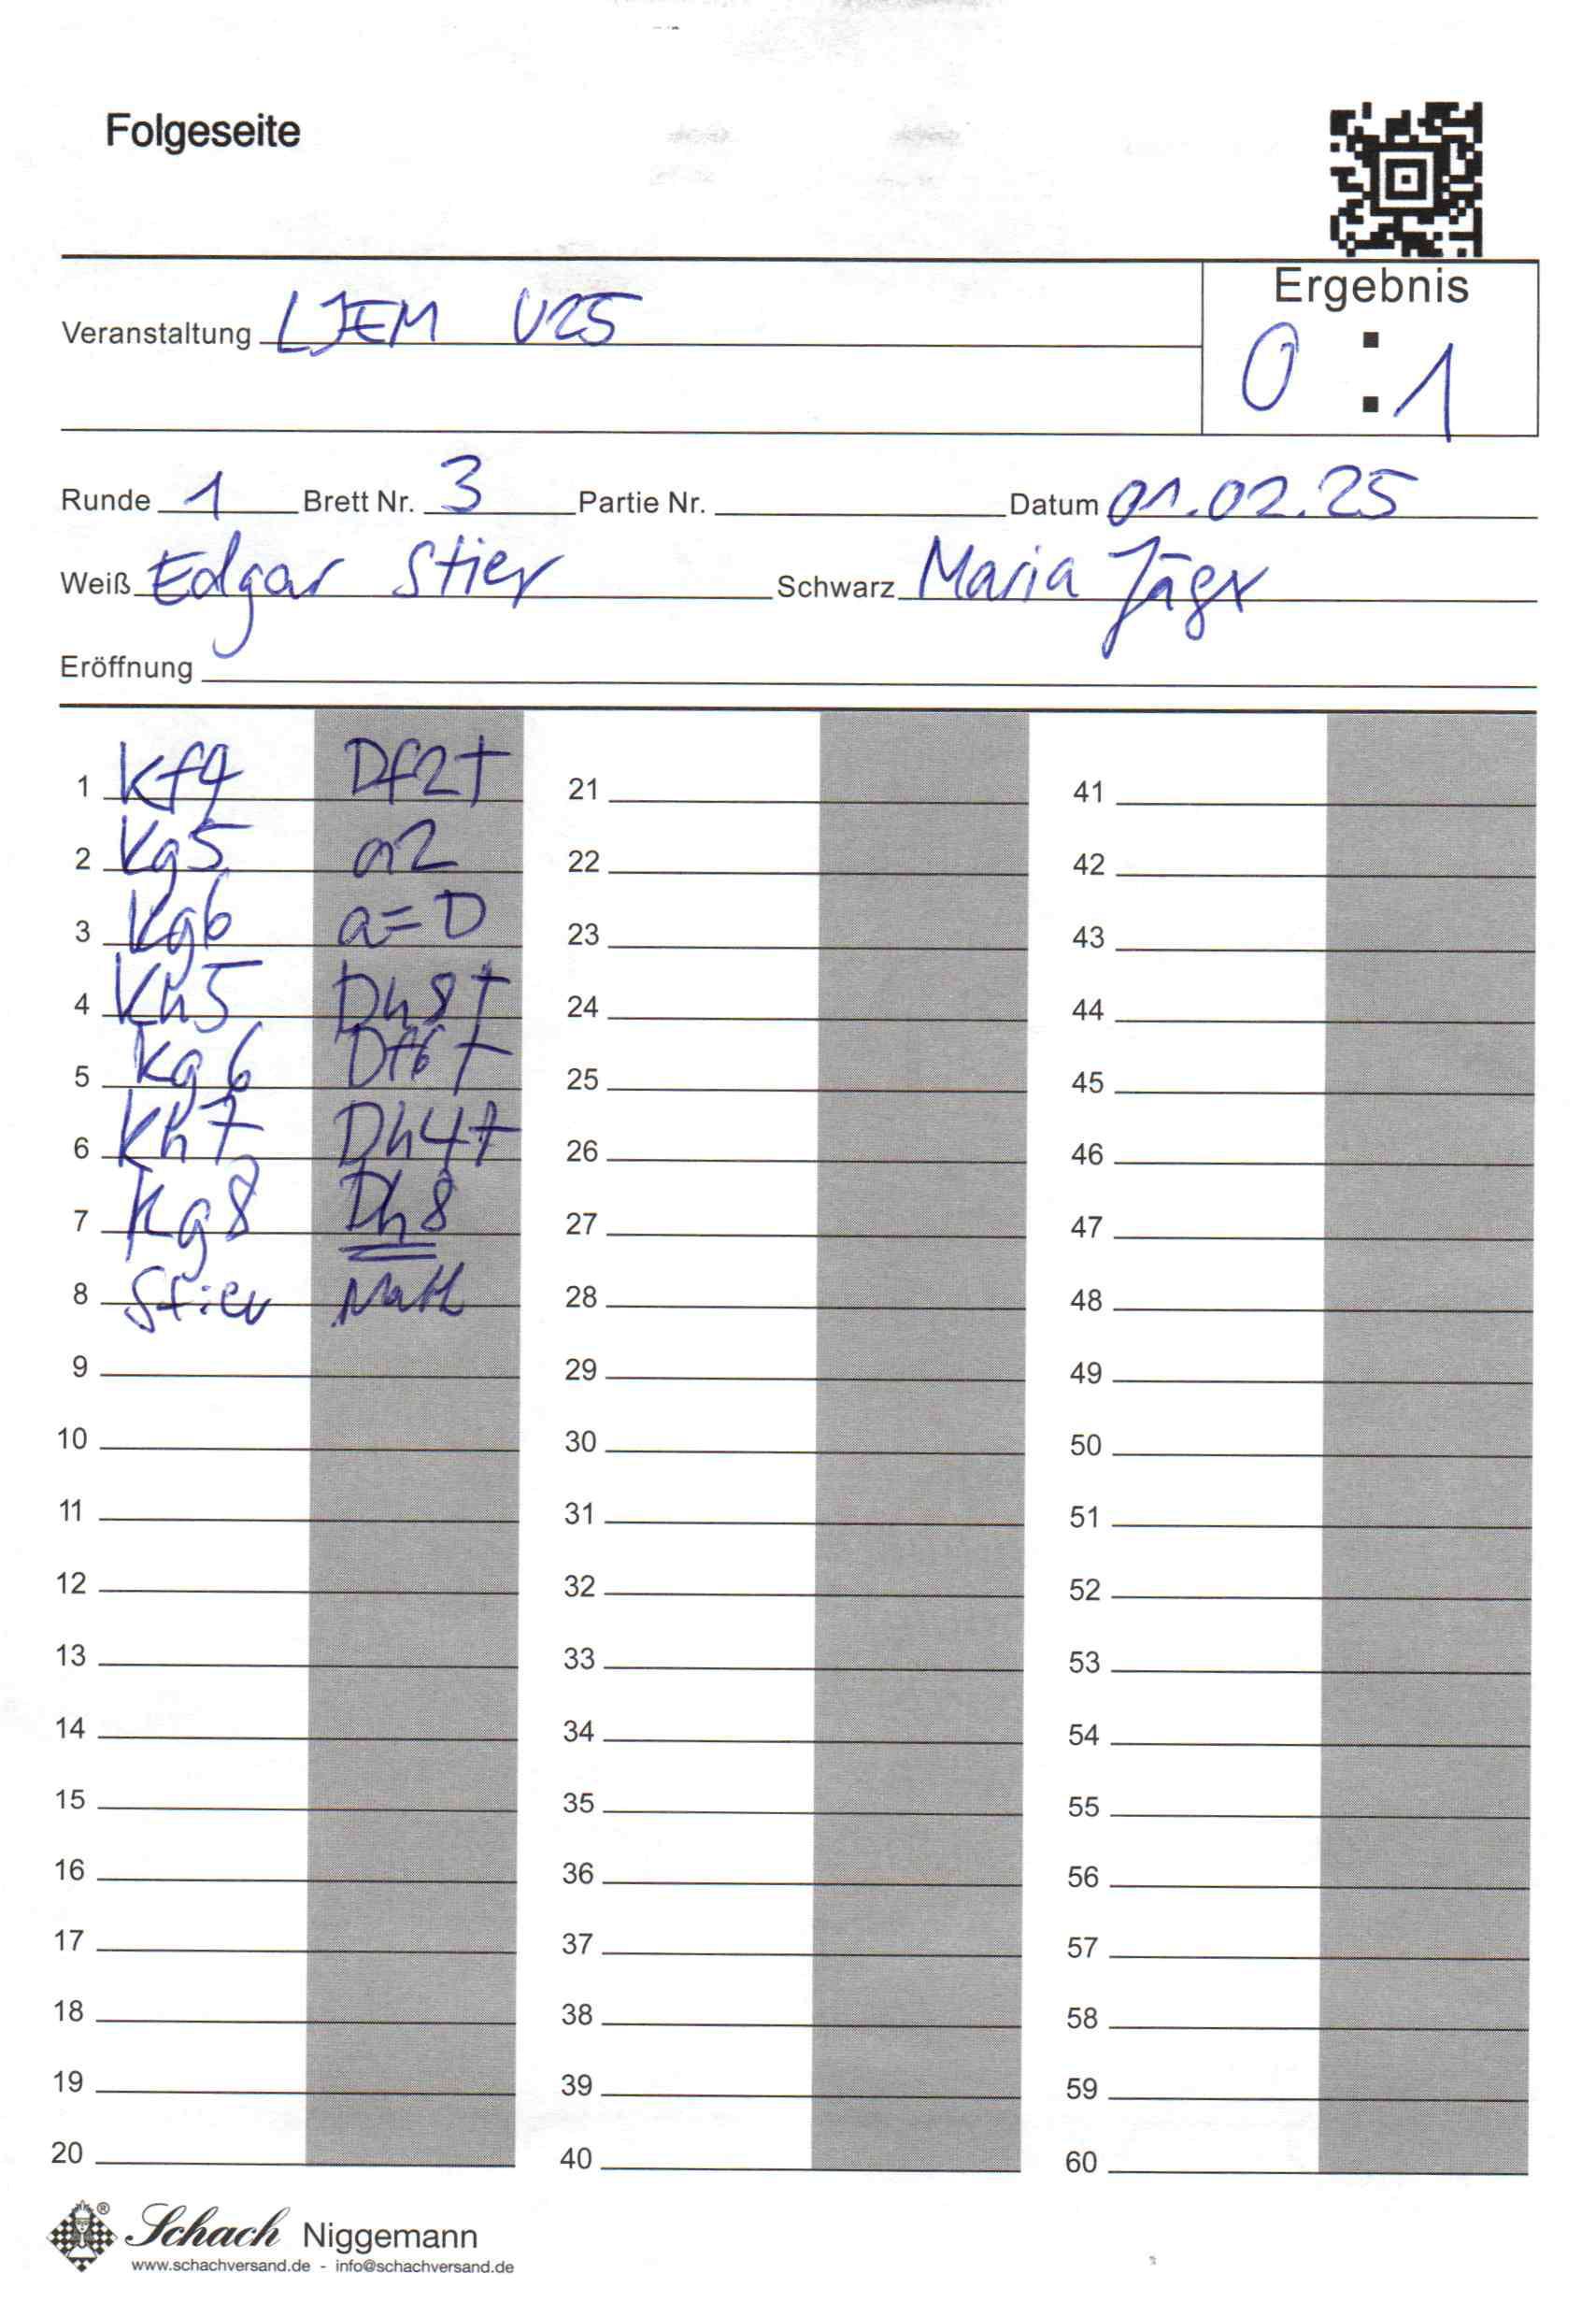 Folgeseite
Ergebnis
Veranstaltung LJEM U25
0 : 1
Runde 1 Brett Nr. 3 Partie Nr. Datum 01.02.25
Weiß Edgar Stier Schwarz Maria Jäger
Eröffnung
1 Kf4 Df2+ 21 41
2 Kg5 a2 22 42
3 Kg6 a=D 23 43
4 Kh5 Dh8+ 24 44
5 Kg6 Df6+ 25 45
6 Kh7 Dh4+ 26 46
7 Kg8 Dh8 27 47
8 Stier 28 48
9 29 49
10 30 50
11 31 51
12 32 52
13 33 53
14 34 54
15 35 55
16 36 56
17 37 57
18 38 58
19 39 59
20 40 60
® Schach Niggemann
www.schachversand.de - info@schachversand.de